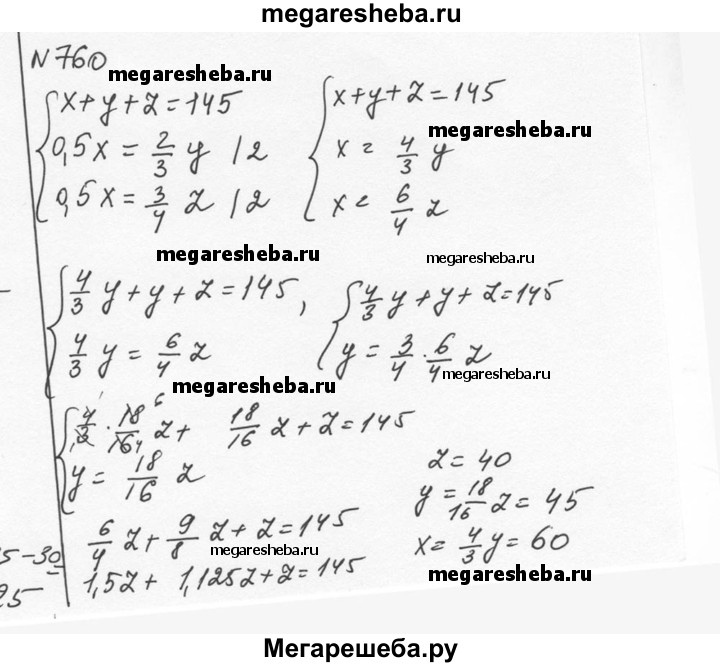 megaresheba.ru
N 760
megaresheba.ru
x+y+z=145
0,5x = 2/3 y /2
0,5x = 3/4 z /2
x+y+z=145
megaresheba.ru
x = 4/3 y
x = 6/4 z
megaresheba.ru
megaresheba.ru
4/3 y + y + z = 145,
4/3 y = 6/4 z
4/3 y + y + z = 145
y = 3/4 · 6/4 z
megaresheba.ru
megaresheba.ru
4/3 · 18/16 z + 18/16 z + z = 145
y = 18/16 z
6/4 z + 9/8 z + z = 145
megaresheba.ru
1,5z + 1,125z + z = 145
z = 40
y = 18/16 z = 45
x = 4/3 y = 60
megaresheba.ru
5-30
25
Мегарешеба.ру